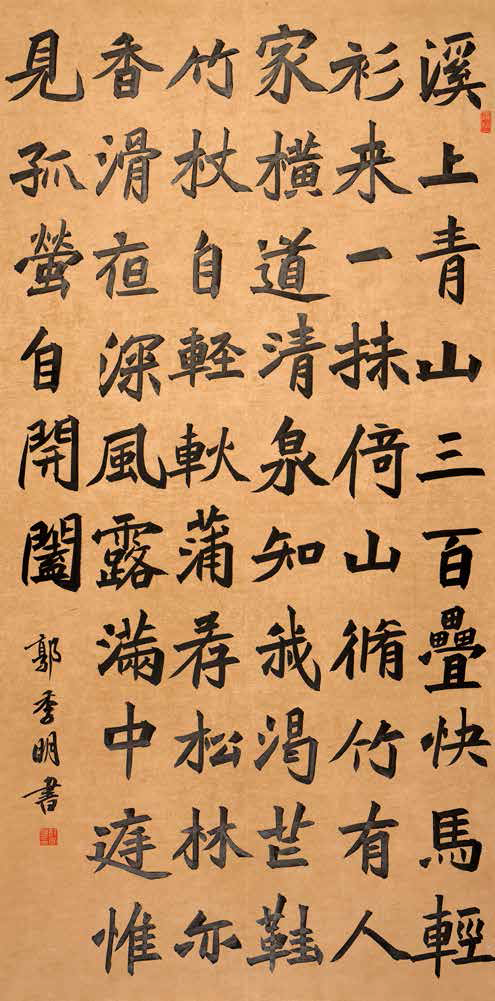 溪上青山三百疊快馬輕
衫来一抹倚山脩竹有人
家横道清泉知我渴芒鞋
竹杖自軽軟蒲荐松林亦
香滑夜深風露滿中庭惟
見孤螢自開闔
郭季明書